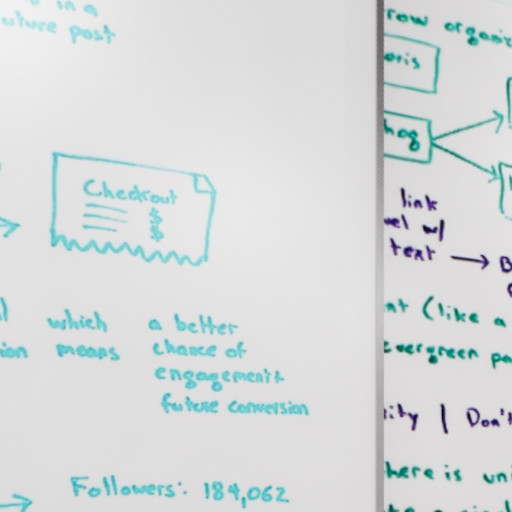 in a
future post
Checkout
$
$
which a better
means chance of
engagement+
future conversion
Followers: 184,062
row organic
link
w/
text → B
(like a
evergreen
| Don't
here is